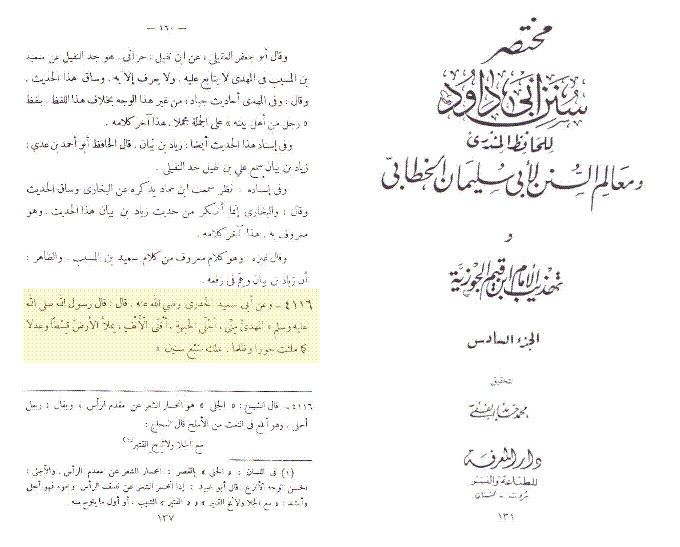 مختصر
سنن أبي داود
للحافظ المنذري
ومعالم السنن لأبي سليمان الخطابي
و
تهذيب الإمام ابن قيم الجوزية
الجزء السادس
تحقيق
محمد حامد الفقي
دار المعرفة
للطباعة والنشر
بيروت - لبنان
١٣١
— ١٦٠ —
وقال أبو جعفر العقيلي ، عن ابن نفيل : حراني . هو جد النفيلي عن سعيد
بن المسيب في المهدي لا يتابع عليه . ولا يعرف إلا به . وساق هذا الحديث .
وقال : وفي المهدي أحاديث جياد ، من غير هذا الوجه بخلاف هذا اللفظ . بلفظ
« رجل من أهل بيته » على الجملة مجملا . هذا آخر كلامه .
وفي إسناد هذا الحديث أيضا : زياد بن بيان . قال الحافظ أبو أحمد بن عدي :
زياد بن بيان سمع علي بن نفيل جد النفيلي .
وفي إسناده نظر سمعت ابن حماد يذكره عن البخاري وساق الحديث
وقال : والبخاري إنما أنكر من حديث زياد بن بيان هذا الحديث . وهو
معروف به . هذا آخر كلامه .
وقال غيره : وهو كلام معروف من كلام سعيد بن المسيب . والظاهر :
أن زياد بن بيان وهم في رفعه .
٤١١٦ ـ وعن أبي سعيد الخدري رضي الله عنه ، قال : قال رسول الله صلى الله
عليه وسلم « المهدي مِنِّي ، أَجْلَى الجبهة ، أَقْنَى الأَنْفِ ، يملأ الأرض قِسْطًا وعدلا
كما ملئت جورا وظلما . يملك سَبْعَ سنين »
٤١١٦ ـ قال الشيخ : « الجلى » هو انحسار الشعر عن مقدم الرأس ، ويقال : رجل
أجلى ، وهو أبلغ في النعت من الأجلح قال العجاج :
مع الجلا ولائح القتير (١)
(١) في اللسان : « الجلى » بالقصر : انحسار الشعر عن مقدم الرأس . والأجلى :
الحسن الوجه الأنزع . قال أبو عبيد : إذا انحسر الشعر عن نصف الرأس ونحوه فهو أجلى
وأنشد : « مع الجلا ولائح القتير » و « القتير » الشيب ، أو أول ما يلوح منه .
١٣٧